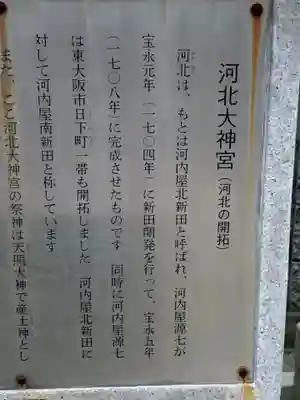 河北大神宮（河北の開拓）
河北は、もとは河内屋北新田と呼ばれ、河内屋源七が
宝永元年（一七〇四年）に新田開発を行って、宝永五年
（一七〇八年）に完成させたものです　同時に河内屋源七
は東大阪市日下町一帯も開拓しました　河内屋北新田に
対して河内屋南新田と称しています
また、ここ河北大神宮の祭神は天照大神で産土神とし